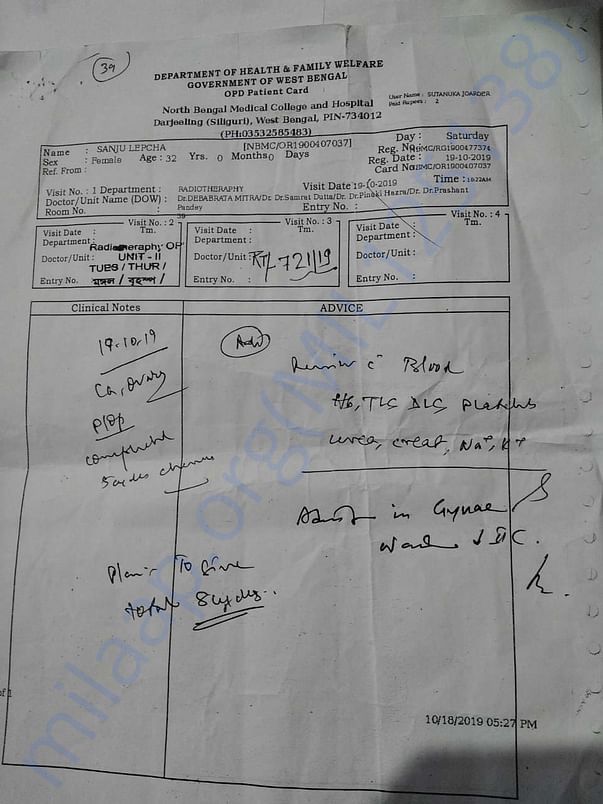 39
DEPARTMENT OF HEALTH & FAMILY WELFARE
GOVERNMENT OF WEST BENGAL
OPD Patient Card
User Name : SUTANUKA JOARDER
Paid Rupees : 2
North Bengal Medical College and Hospital
Darjeeling (Siliguri), West Bengal, PIN-734012
(PH:03532585483)
Name : SANJU LEPCHA [NBMC/OR1900407037] Day : Saturday
Sex : Female Age : 32 Yrs. 0 Months 0 Days Reg. No NBMC/RG1900477374
Ref. From : Reg. Date : 19-10-2019
Card No NBMC/OR1900407037
Time : 10:22AM
Visit No. : 1 Department : RADIOTHERAPHY Visit Date 19-10-2019
Doctor/Unit Name (DOW) : Dr.DEBABRATA MITRA/Dr. Samrat Dutta/Dr. Dr.Pinaki Hazra/Dr. Dr.Prashant
Room No. : Pandey Entry No. :
39
Visit No. : 2 Visit No. : 3 Visit No. : 4
Visit Date : Tm. Visit Date : Tm. Visit Date : Tm.
Department : Department : Department :
Radiotheraphy OP
Doctor/Unit : UNIT - II Doctor/Unit : RT/721/19 Doctor/Unit :
TUES / THUR /
Entry No. : মঙ্গল / বৃহস্প / Entry No. : Entry No. :
Clinical Notes ADVICE
19.10.19 Adv
Ca, Ovary Review c Blood
Hb, TLC DLC Platelets
completed urea, creat, Na+, K+
5 cycles chemo
Admit in Gynae
ward
Plan - To Give
total 8 cycles.
of 1
10/18/2019 05:27 PM
milaap.org